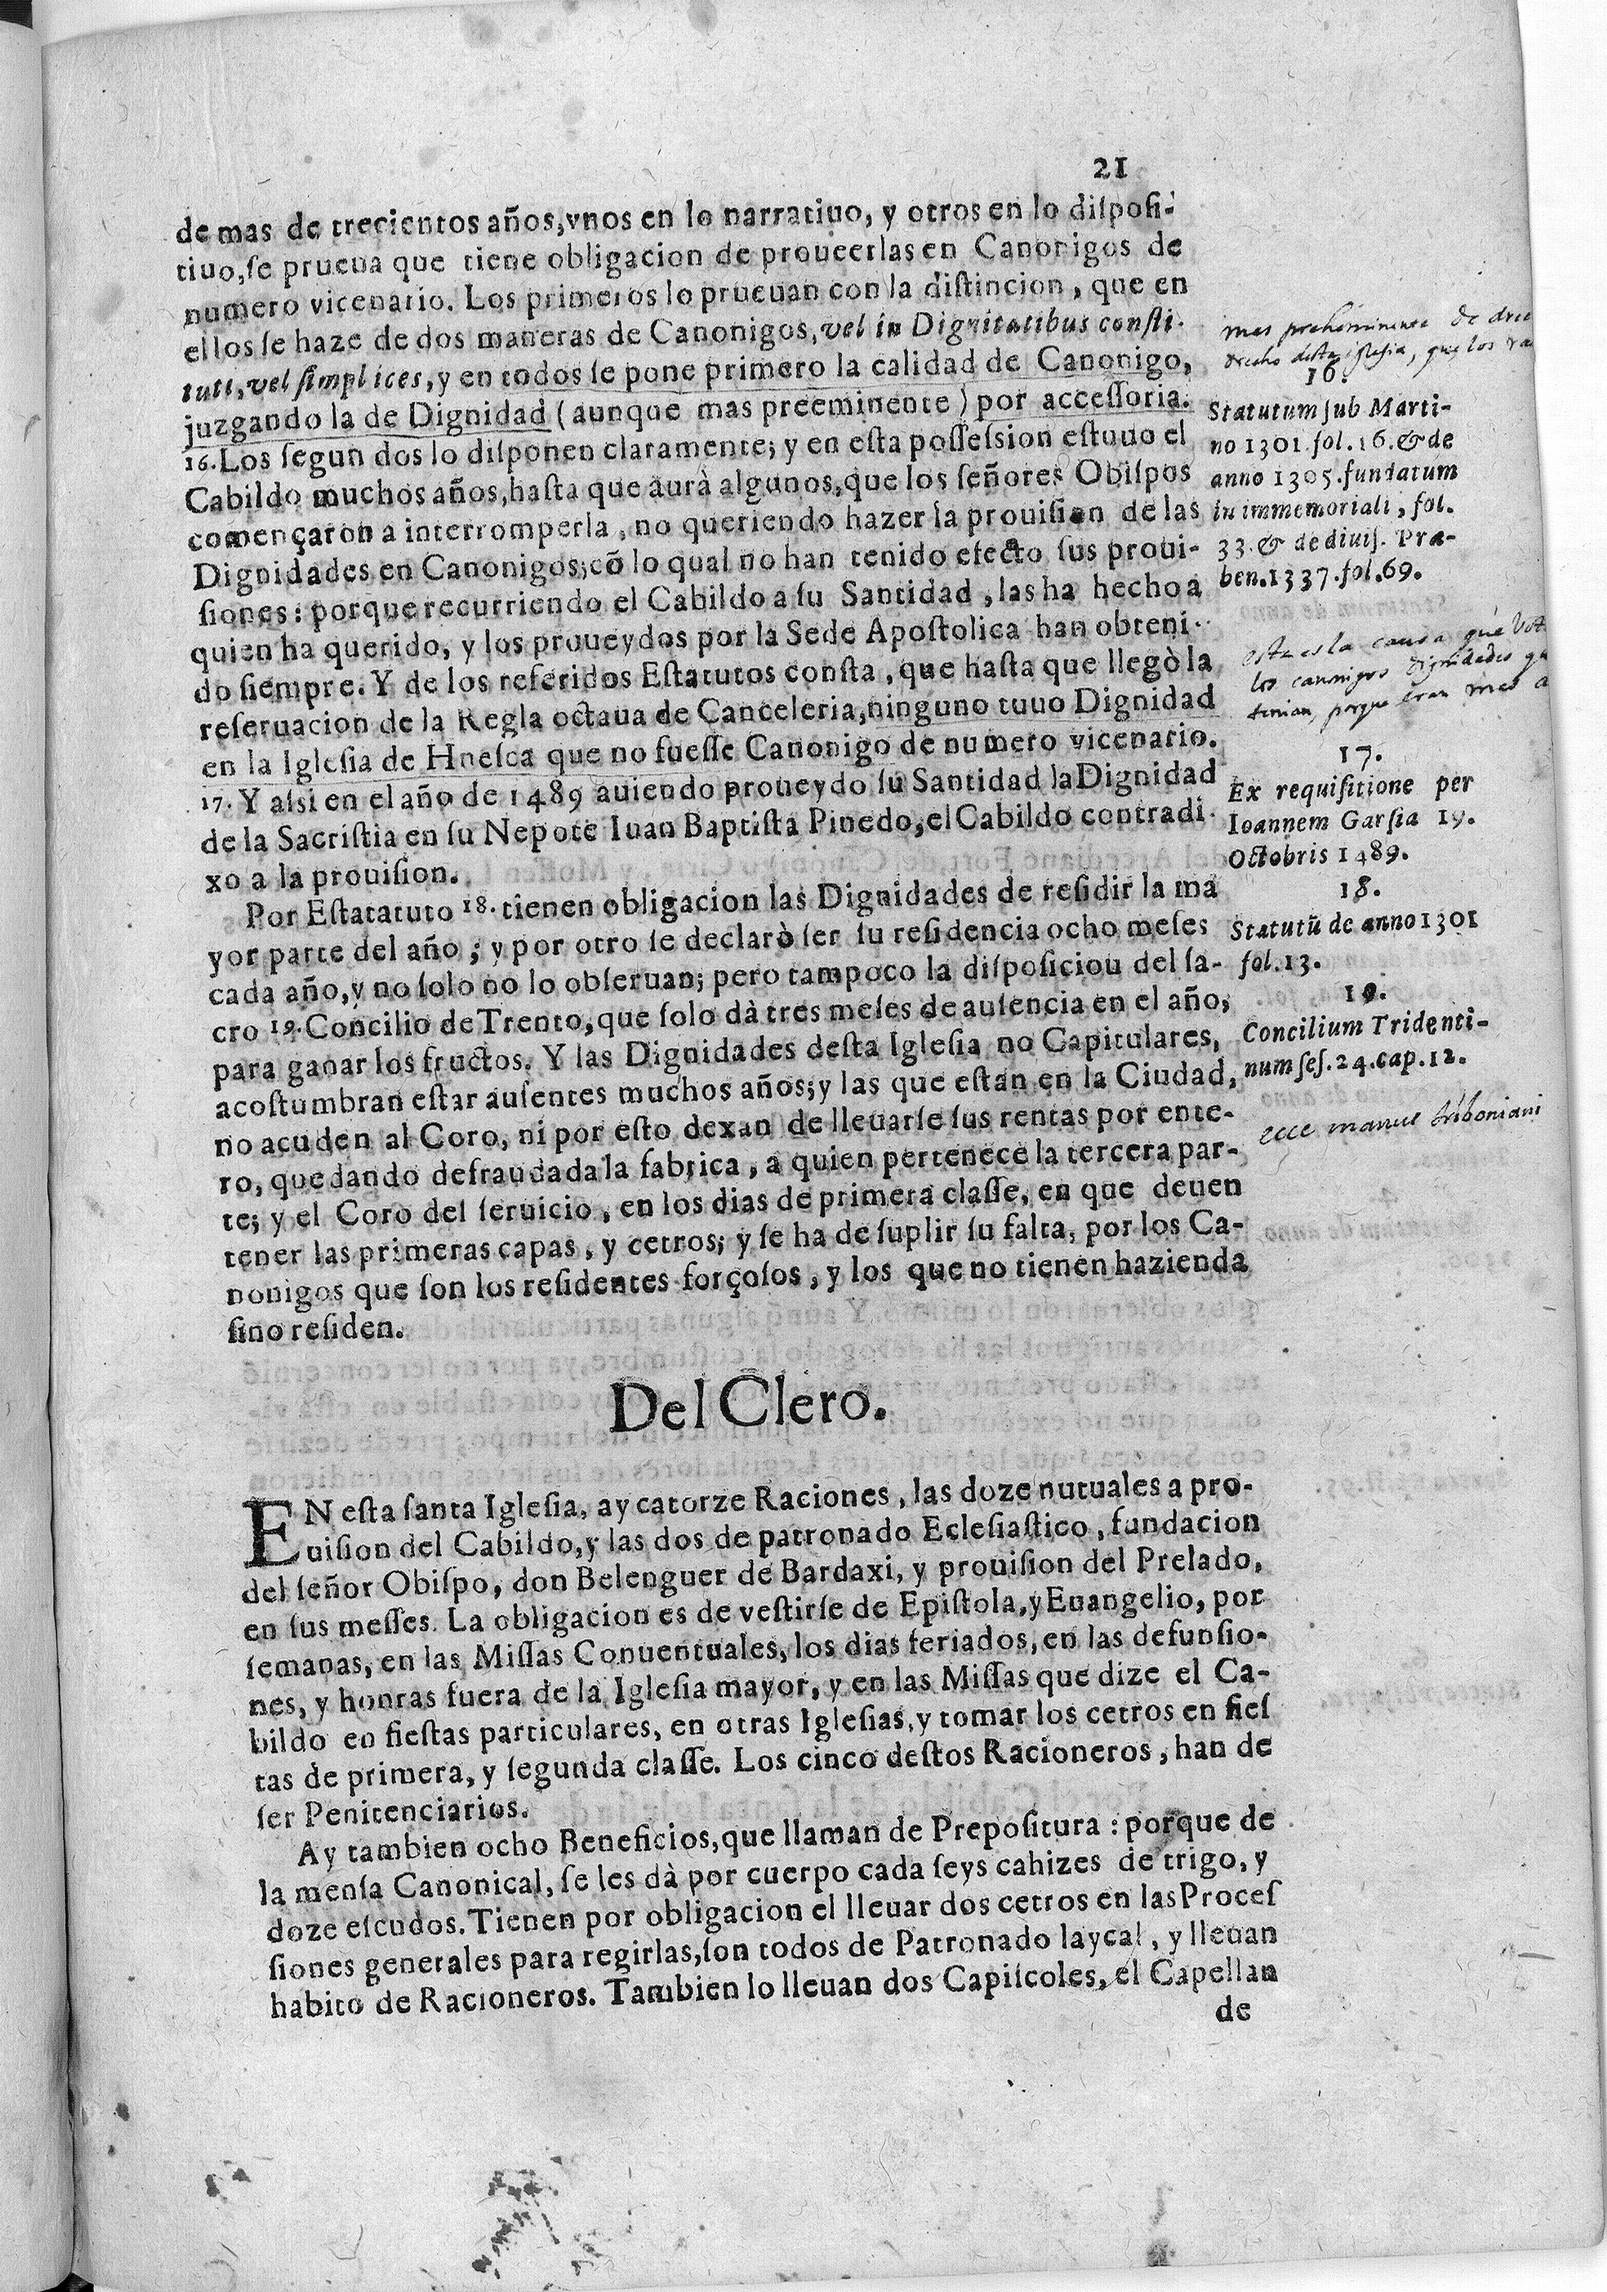 21
de mas de trecientos años, vnos en lo narratiuo, y otros en lo disposi-
tiuo, se prueua que tiene obligacion de proueerlas en Canonigos de
numero vicenario. Los primeros lo prueuan con la distincion, que en
ellos se haze de dos maneras de Canonigos, vel in Dignitatibus consti-
tuti, vel simplices, y en todos se pone primero la calidad de Canonigo,
juzgando la de Dignidad (aunque mas preeminente) por accessoria.
16. Los segundos lo disponen claramente; y en esta possession estuuo el
Cabildo muchos años, hasta que aurà algunos, que los señores Obispos
començaron a interromperla, no queriendo hazer la prouision de las
Dignidades en Canonigos; cõ lo qual no han tenido efecto sus proui-
siones: porque recurriendo el Cabildo a su Santidad, las ha hecho a
quien ha querido, y los proueydos por la Sede Apostolica han obteni-
do siempre. Y de los referidos Estatutos consta, que hasta que llegò la
reseruacion de la Regla octaua de Canceleria, ninguno tuuo Dignidad
en la Iglesia de Huesca que no fuesse Canonigo de numero vicenario.
17. Y assi en el año de 1489 auiendo proueydo su Santidad la Dignidad
de la Sacristia en su Nepote Iuan Baptista Pinedo, el Cabildo contradi-
xo a la prouision.
Por Estatatuto 18. tienen obligacion las Dignidades de residir la ma
yor parte del año; y por otro se declarò ser su residencia ocho meses
cada año, y no solo no lo obseruan; pero tampoco la disposiciou del sa-
cro 19. Concilio de Trento, que solo dà tres meses de ausencia en el año,
para ganar los fructos. Y las Dignidades desta Iglesia no Capitulares,
acostumbran estar ausentes muchos años; y las que estan en la Ciudad,
no acuden al Coro, ni por esto dexan de lleuarse sus rentas por ente-
ro, quedando defraudada la fabrica, a quien pertenece la tercera par-
te; y el Coro del seruicio, en los dias de primera classe, en que deuen
tener las primeras capas, y cetros; y se ha de suplir su falta, por los Ca-
nonigos que son los residentes forçosos, y los que no tienen hazienda
sino residen.
mas preheminente de
drecho desta iglesia, que los
16.
Statutum sub Marti-
no 1301. fol. 16. & de
anno 1305. fundatum
in immemoriali, fol.
33. & de diuis. Præ-
ben. 1337. fol. 69.
esta es la causa que
los canonigos dignidades
tenian, porque eran mas
17.
Ex requisitione per
Ioannem Garsia 19.
Octobris 1489.
18.
Statutũ de anno 1301
fol. 13.
19.
Concilium Tridenti-
num ses. 24. cap. 12.
ecce manus triboniani
Del Clero.
EN esta santa Iglesia, ay catorze Raciones, las doze nutuales a pro-
uision del Cabildo, y las dos de patronado Eclesiastico, fundacion
del señor Obispo, don Belenguer de Bardaxi, y prouision del Prelado,
en sus messes. La obligacion es de vestirse de Epistola, y Euangelio, por
semanas, en las Missas Conuentuales, los dias feriados, en las defunsio-
nes, y honras fuera de la Iglesia mayor, y en las Missas que dize el Ca-
bildo en fiestas particulares, en otras Iglesias, y tomar los cetros en fies
tas de primera, y segunda classe. Los cinco destos Racioneros, han de
ser Penitenciarios.
Ay tambien ocho Beneficios, que llaman de Prepositura: porque de
la mensa Canonical, se les dà por cuerpo cada seys cahizes de trigo, y
doze escudos. Tienen por obligacion el lleuar dos cetros en las Proces
siones generales para regirlas, son todos de Patronado laycal, y lleuan
habito de Racioneros. Tambien lo lleuan dos Capiscoles, el Capellan
de